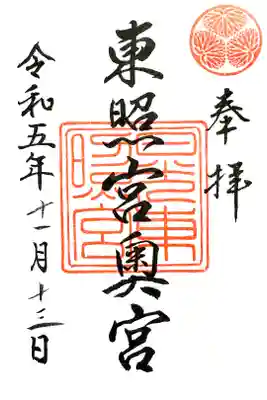 奉拝
東照宮奥宮
令和五年十一月十三日